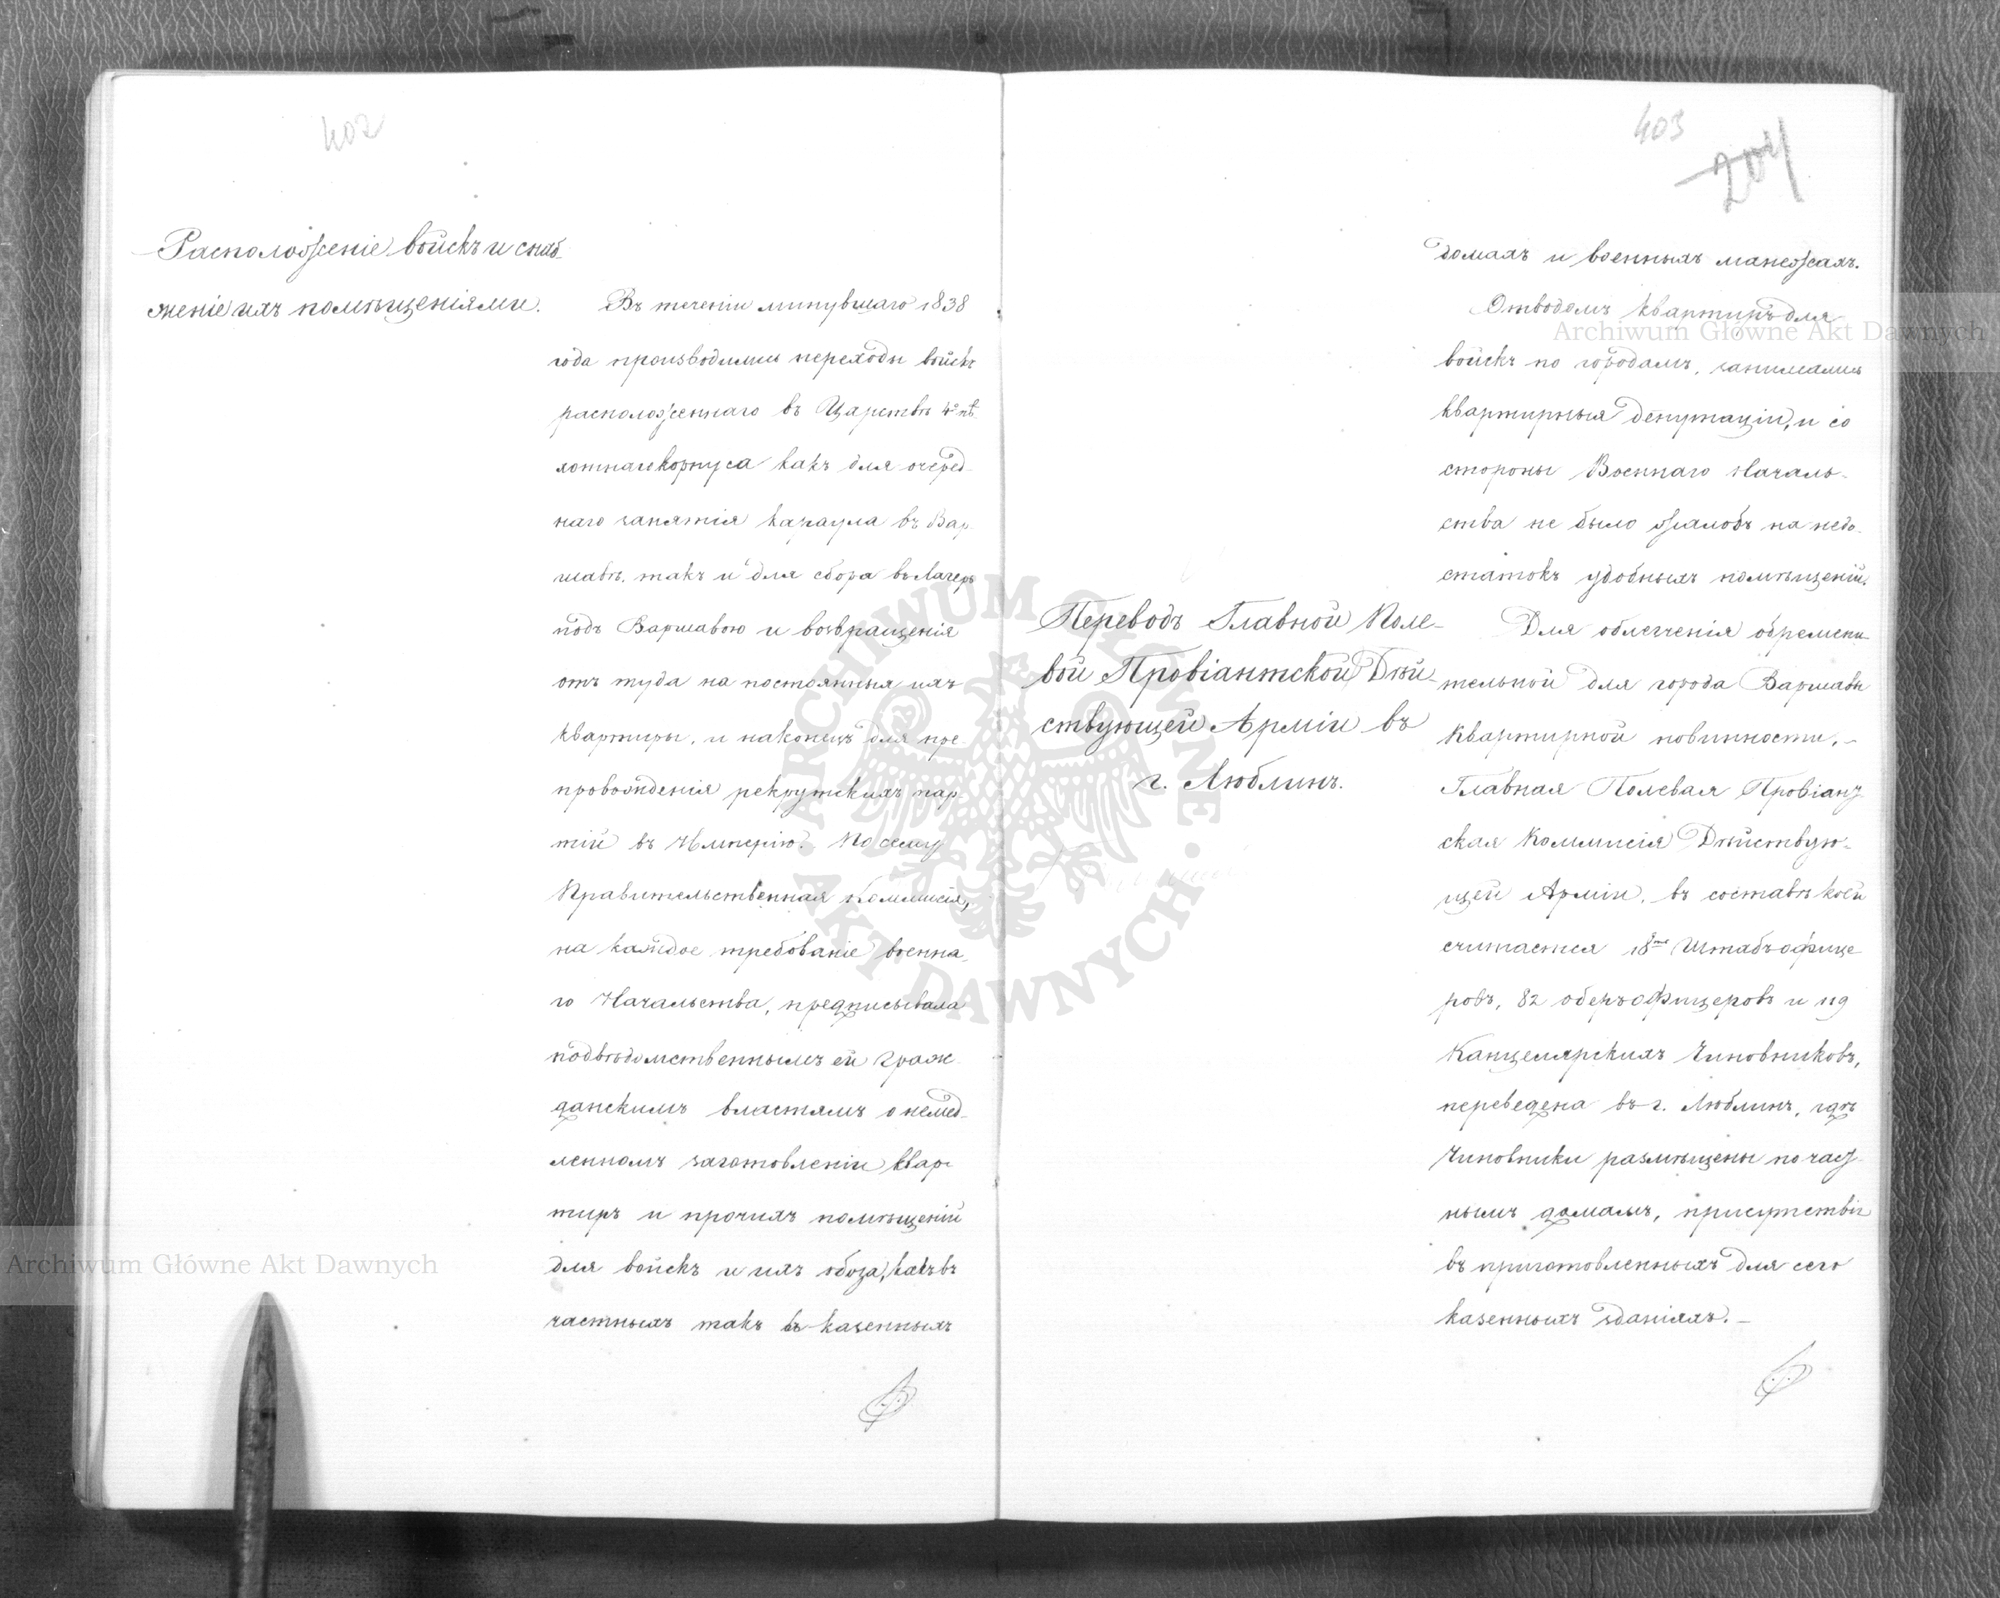 402
Расположеніе войскъ и снаб-
женіе ихъ помѣщеніями.
Въ теченіи минувшаго 1838
года производимы переходы войскъ
расположеннаго въ Царствѣ 4º пѣ-
хотнаго корпуса какъ для очеред-
наго занятія караула въ Вар-
шавѣ, такъ и для сбора въ Лагерь
подъ Варшавою и возвращенія
отъ туда на постоянныя ихъ
квартиры, и наконецъ для пре-
провожденія рекрутскихъ пар-
тій въ Имперію. По сему
Правительственная Коммисія,
на каждое требованіе военна-
го Начальства, предписывала
подвѣдомственнымъ ей граж-
данскимъ властямъ о немед-
ленномъ заготовленіи квар-
тиръ и прочихъ помѣщеній
для войскъ и ихъ обоза, какъ въ
частныхъ такъ въ казенныхъ
403
204
домахъ и военныхъ манежахъ.
Отводомъ квартиръ для
войскъ по городамъ, занимались
квартирныя депутаціи, и со
стороны Военнаго Началь-
ства не было жалобъ на недо-
статокъ удобныхъ помѣщеній.
Переводъ Главной Поле-
вой Провіантской Дѣй-
ствующей Арміи въ
г. Люблинъ.
Для облегченія обремени-
тельной для города Варшавы
квартирной повинности, –
Главная Полевая Провіант-
ская Коммисія Дѣйствую-
щей Арміи, въ составѣ коей
считается 18ть Штабъ-офице
ровъ, 82 оберъ-офицеровъ и 119
Канцелярскихъ Чиновниковъ,
переведена въ г. Люблинъ, гдѣ
Чиновники размѣщены по част-
нымъ домамъ, присутствіе
въ приготовленныхъ для сего
казенныхъ зданіяхъ. –
Archiwum Główne Akt Dawnych
Archiwum Główne Akt Dawnych
ARCHIWUM GŁÓWNE AKT DAWNYCH